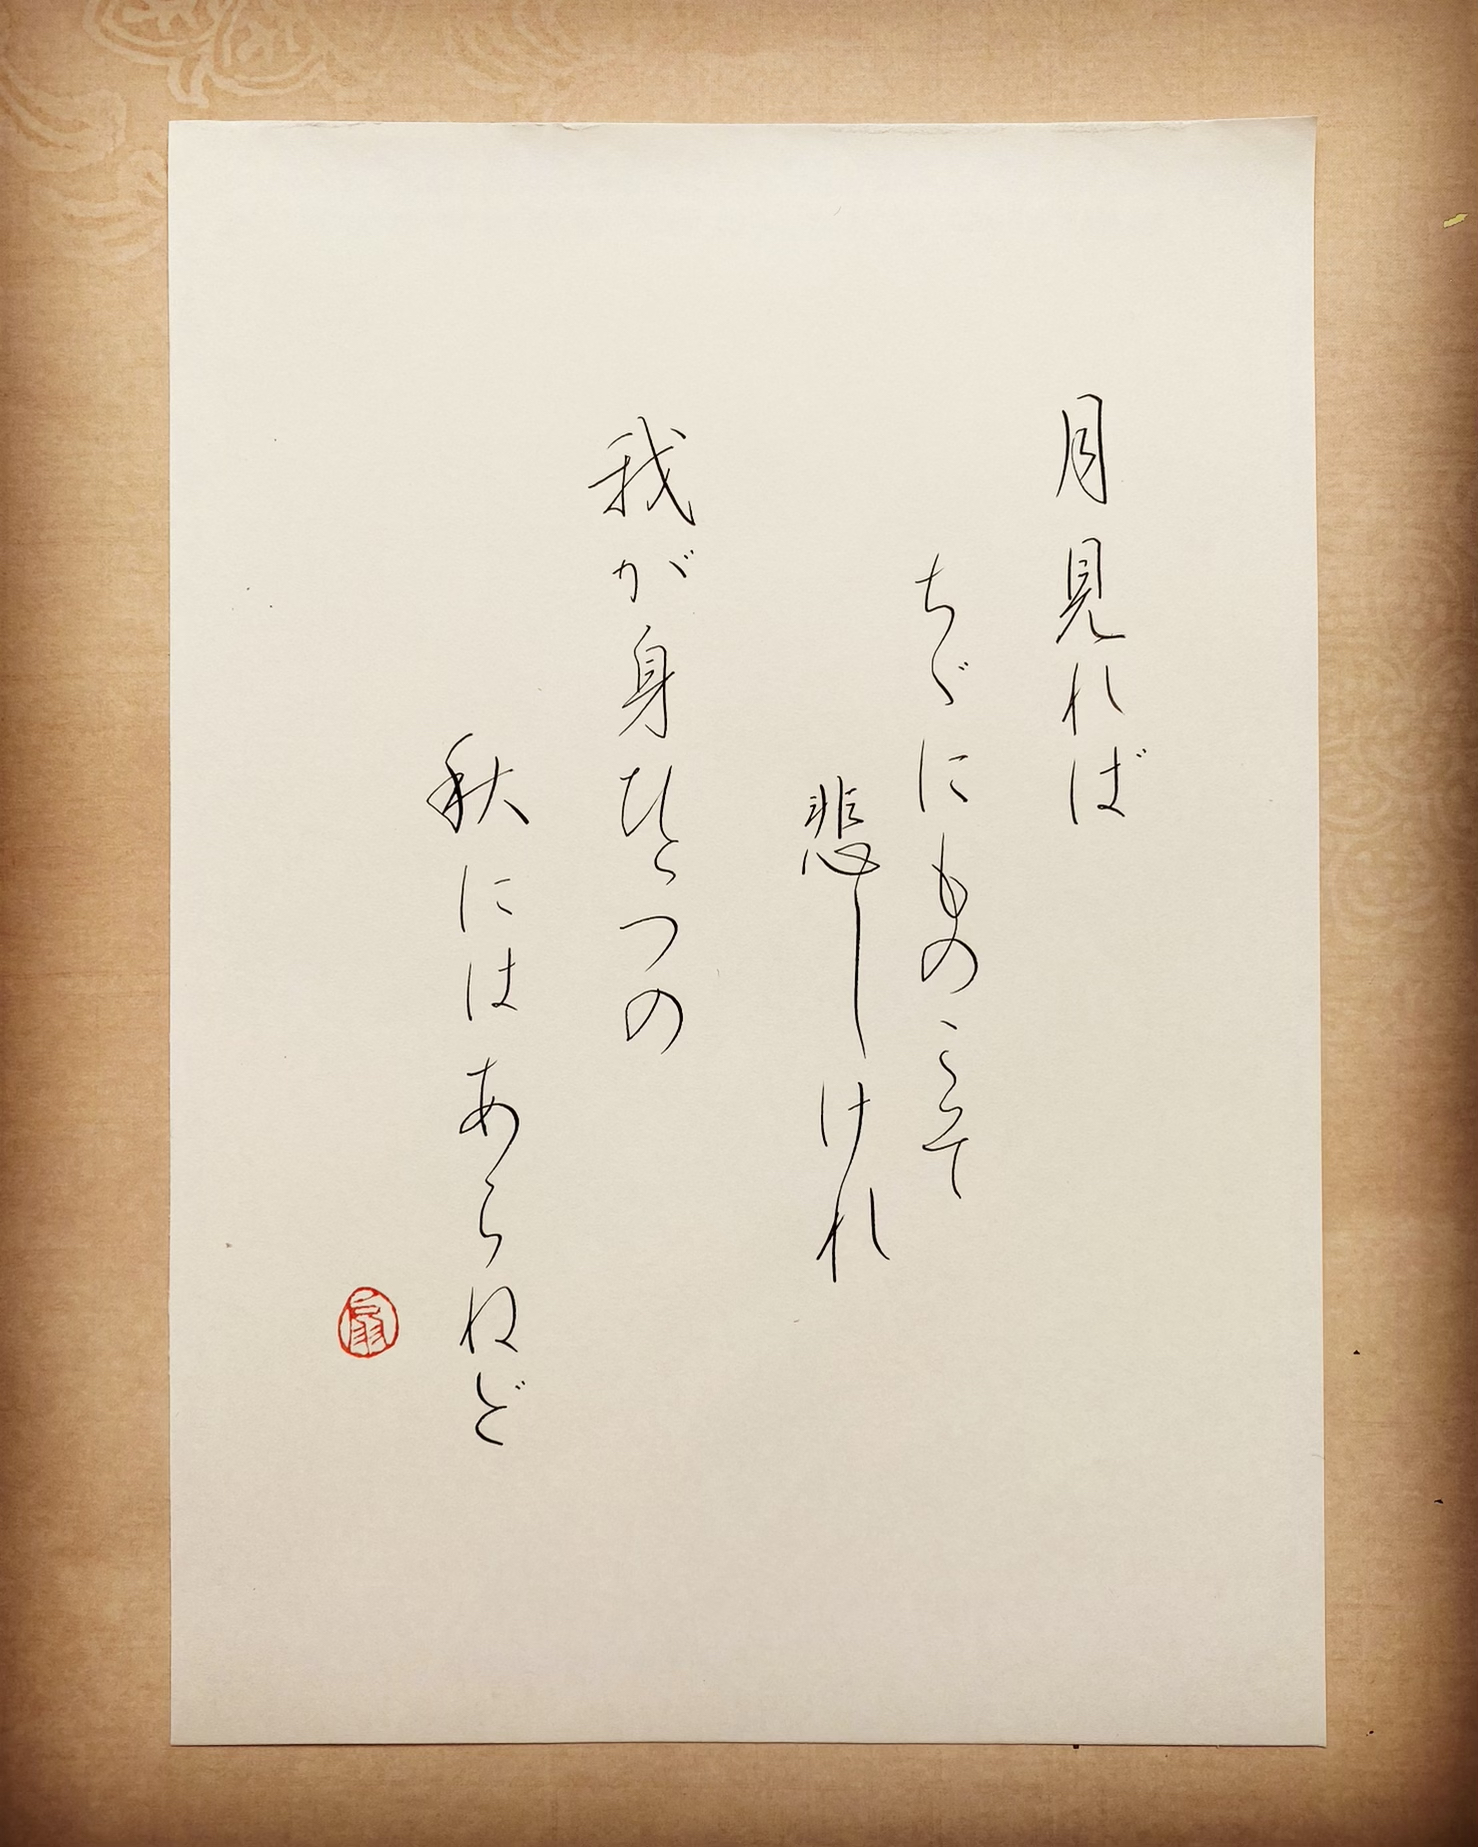 月見れば
ちゞにものこそ
悲しけれ
我が身ひとつの
秋にはあらねど